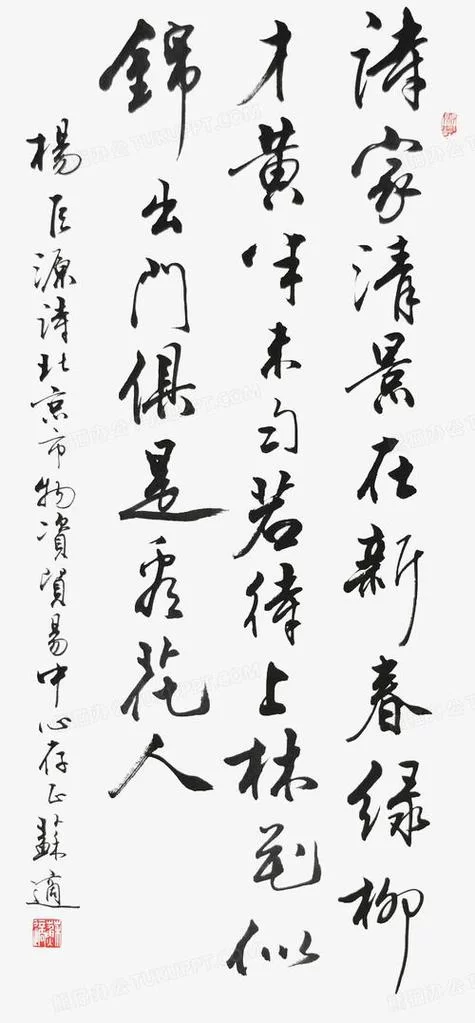 诗家清景在新春绿柳
才黄半未匀若待上林花似
錦出門俱是看花人
楊巨源诗北京市物資貿易中心存正蘇適